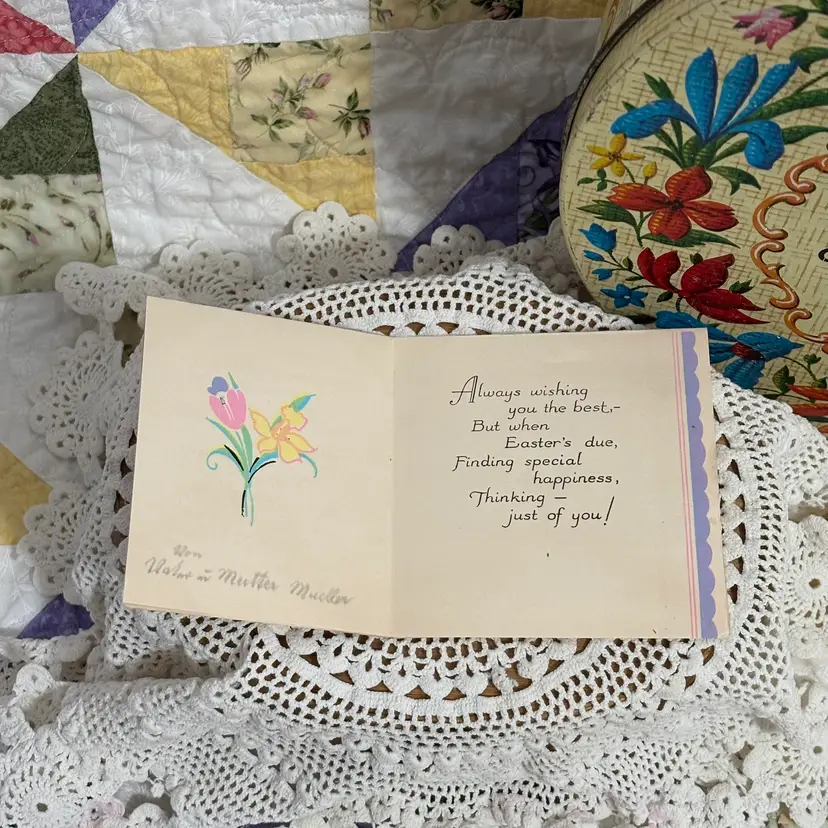 Von
Vater u Mutter Mueller
Always wishing
you the best,-
But when
Easter's due,
Finding special
happiness,
Thinking —
just of you!